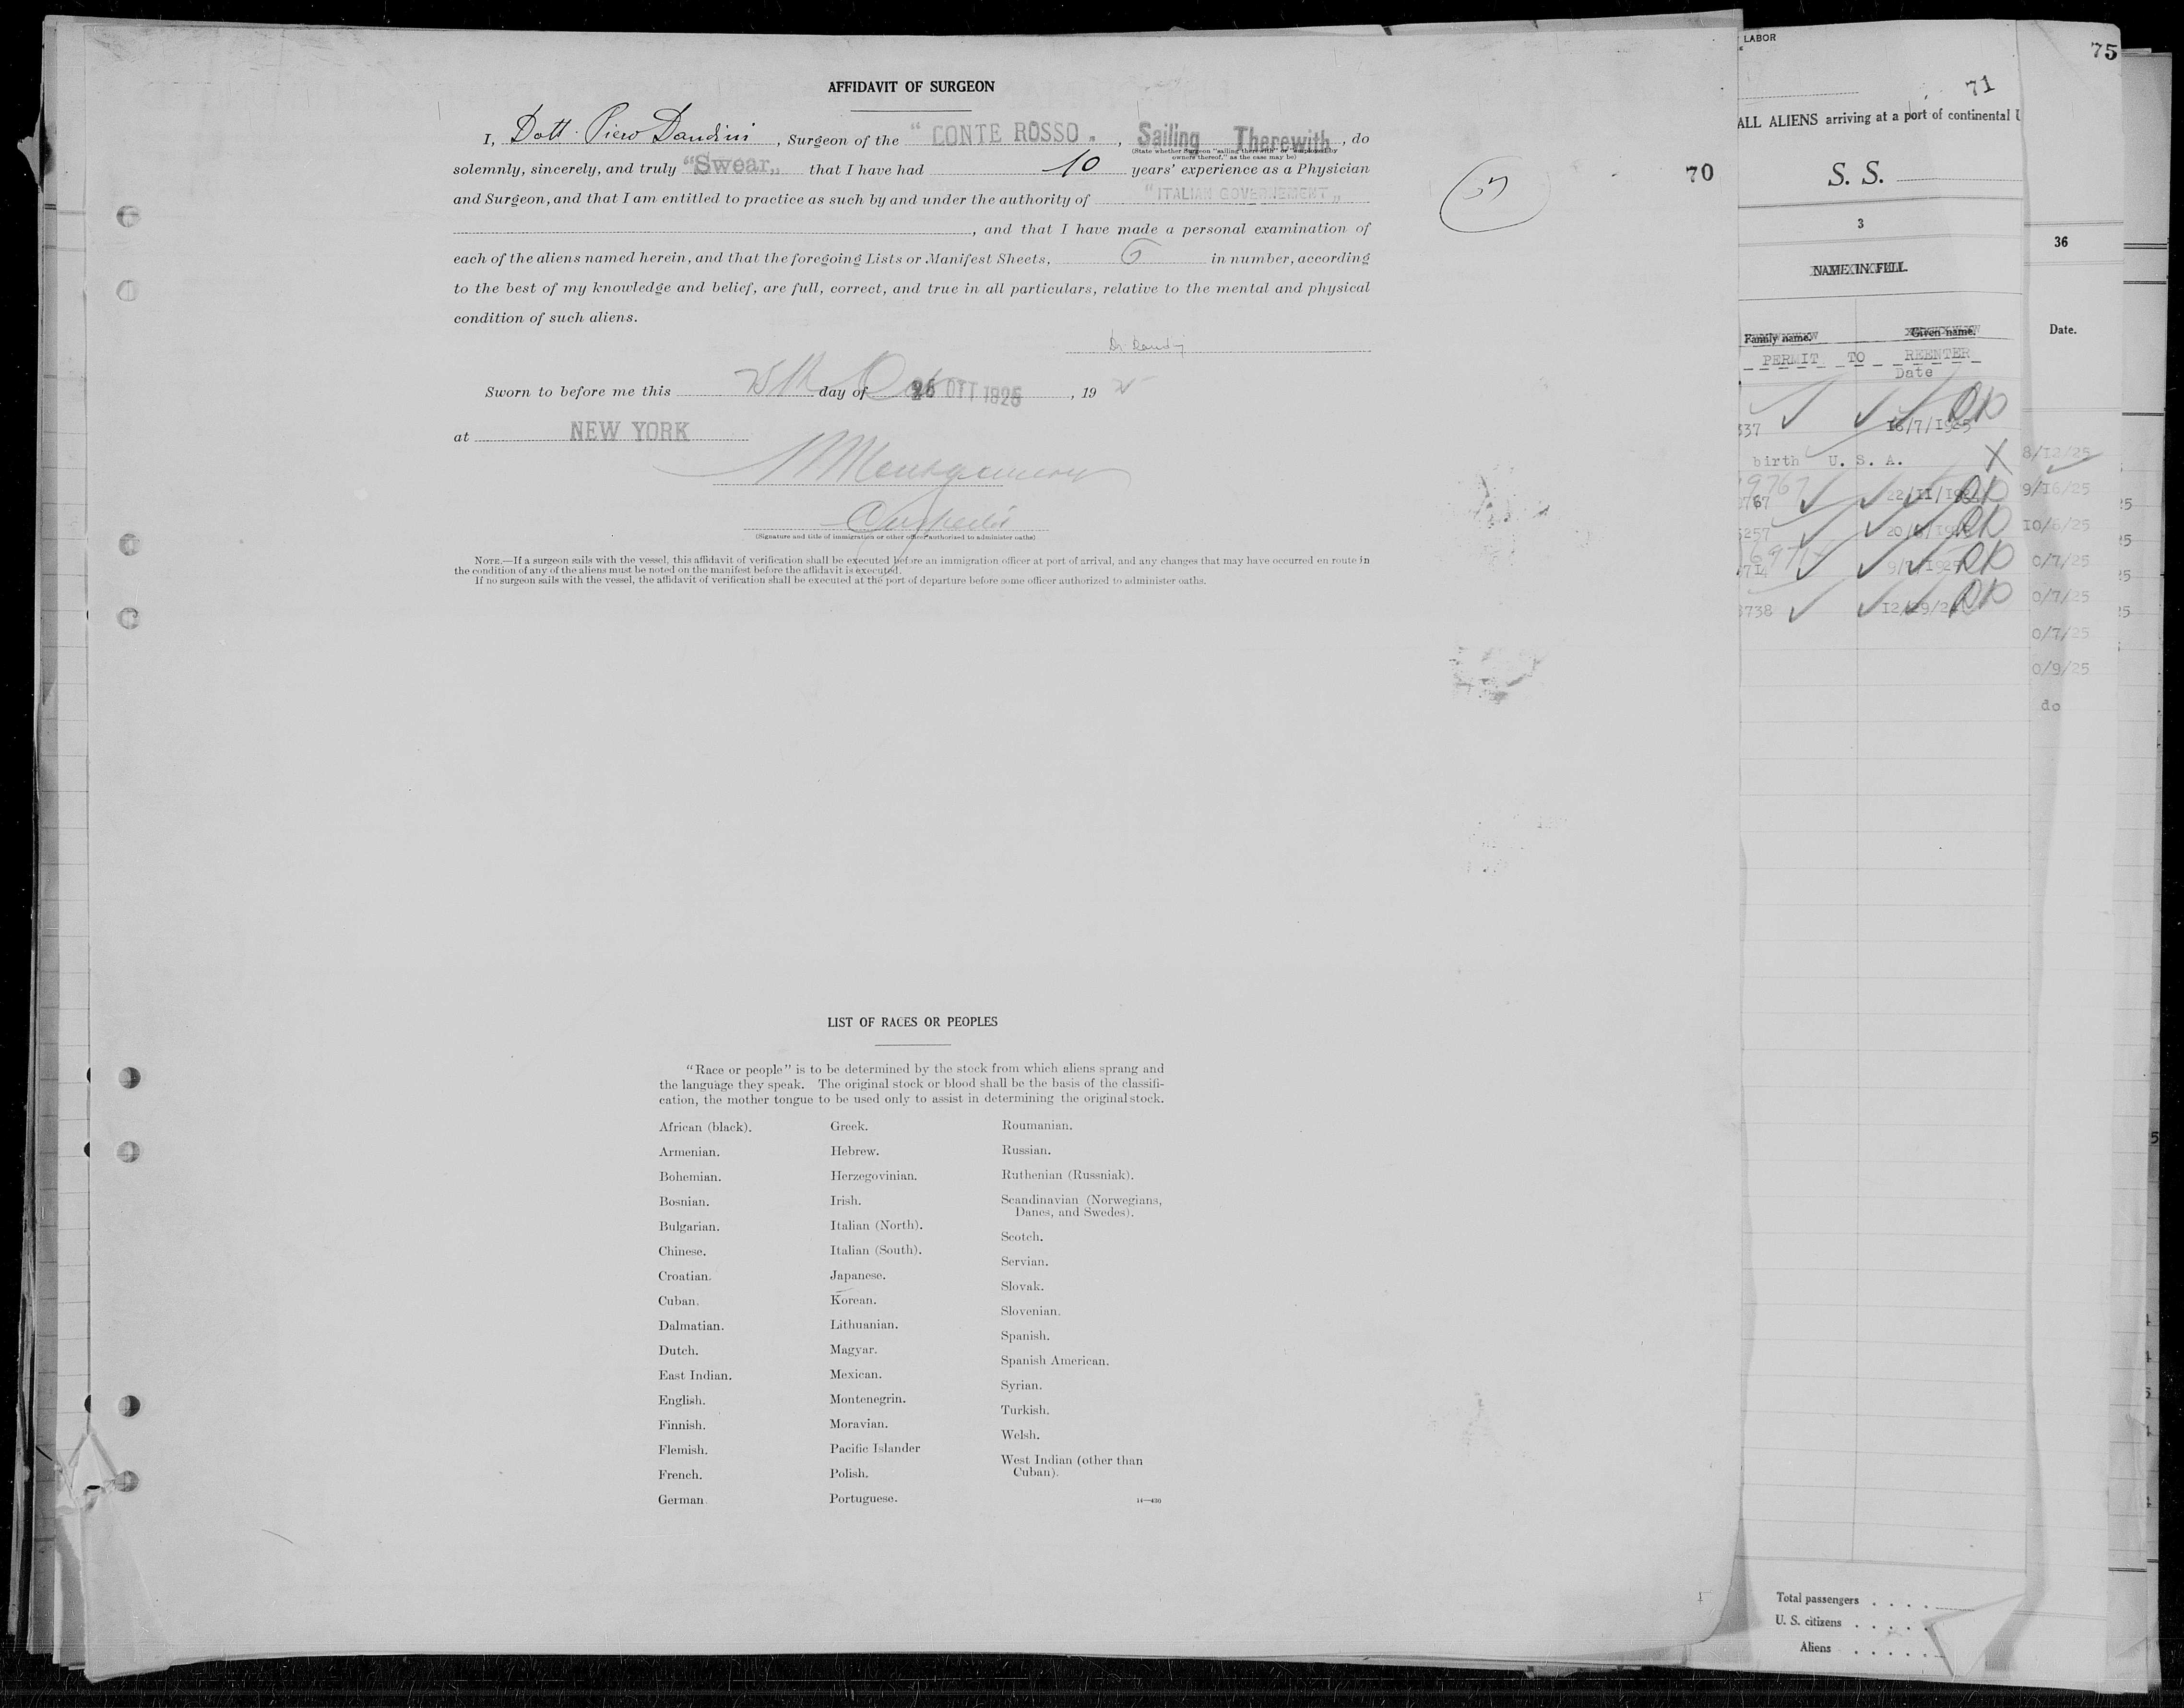 AFFIDAVIT OF SURGEON
I, Dott. Piero Dandini, Surgeon of the "CONTE ROSSO", Sailing Therewith, do
(State whether Surgeon "sailing therewith" or "employed by
owners thereof," as the case may be)
solemnly, sincerely, and truly "Swear" that I have had 10 years' experience as a Physician
and Surgeon, and that I am entitled to practice as such by and under the authority of "ITALIAN GOVERNEMENT"
, and that I have made a personal examination of
each of the aliens named herein, and that the foregoing Lists or Manifest Sheets, 6 in number, according
to the best of my knowledge and belief, are full, correct, and true in all particulars, relative to the mental and physical
condition of such aliens.
Sworn to before me this 25th day of Oct 26 OTT 1925, 19 25
at NEW YORK
(Signature and title of immigration or other officer authorized to administer oaths)
NOTE.—If a surgeon sails with the vessel, this affidavit of verification shall be executed before an immigration officer at port of arrival, and any changes that may have occurred en route in
the condition of any of the aliens must be noted on the manifest before the affidavit is executed.
If no surgeon sails with the vessel, the affidavit of verification shall be executed at the port of departure before some officer authorized to administer oaths.
70
LIST OF RACES OR PEOPLES
"Race or people" is to be determined by the stock from which aliens sprang and
the language they speak. The original stock or blood shall be the basis of the classifi-
cation, the mother tongue to be used only to assist in determining the original stock.
African (black).
Armenian.
Bohemian.
Bosnian.
Bulgarian.
Chinese.
Croatian.
Cuban.
Dalmatian.
Dutch.
East Indian.
English.
Finnish.
Flemish.
French.
German.
Greek.
Hebrew.
Herzegovinian.
Irish.
Italian (North).
Italian (South).
Japanese.
Korean.
Lithuanian.
Magyar.
Mexican.
Montenegrin.
Moravian.
Pacific Islander
Polish.
Portuguese.
Roumanian.
Russian.
Ruthenian (Russniak).
Scandinavian (Norwegians,
Danes, and Swedes).
Scotch.
Servian.
Slovak.
Slovenian.
Spanish.
Spanish American.
Syrian.
Turkish.
Welsh.
West Indian (other than
Cuban).
14—430
LABOR
71
ALL ALIENS arriving at a port of continental U
S. S.
3
NAME IN FULL
Family name. Given name.
PERMIT TO REENTER
Date
337 16/7/1925 OK
birth U. S. A. X
9767
3767 22/11/192 OK
5257 OK
714 OK
3738 OK
Total passengers
U. S. citizens
Aliens
75
36
Date.
8/12/25
9/16/25
10/6/25
0/7/25
0/7/25
0/7/25
0/9/25
do